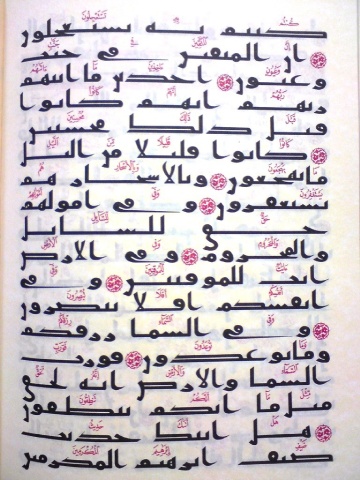 كنتم به تستعجلون
ان المتقين في جنت
وعيون اخذين ما اتيهم
ربهم انهم كانوا
قبل ذلك محسنين
كانوا قليلا من اليل
ما يهجعون وبالاسحار هم
يستغفرون وفي امولهم
حق للسايل
والمحروم وفي الارض
ايت للموقنين وفي
انفسكم افلا تبصرون
وفي السما رزقكم
وما توعدون فورب
السما والارض انه لحق
مثل ما انكم تنطقون
هل اتيك حديث
ضيف ابرهيم المكرمين